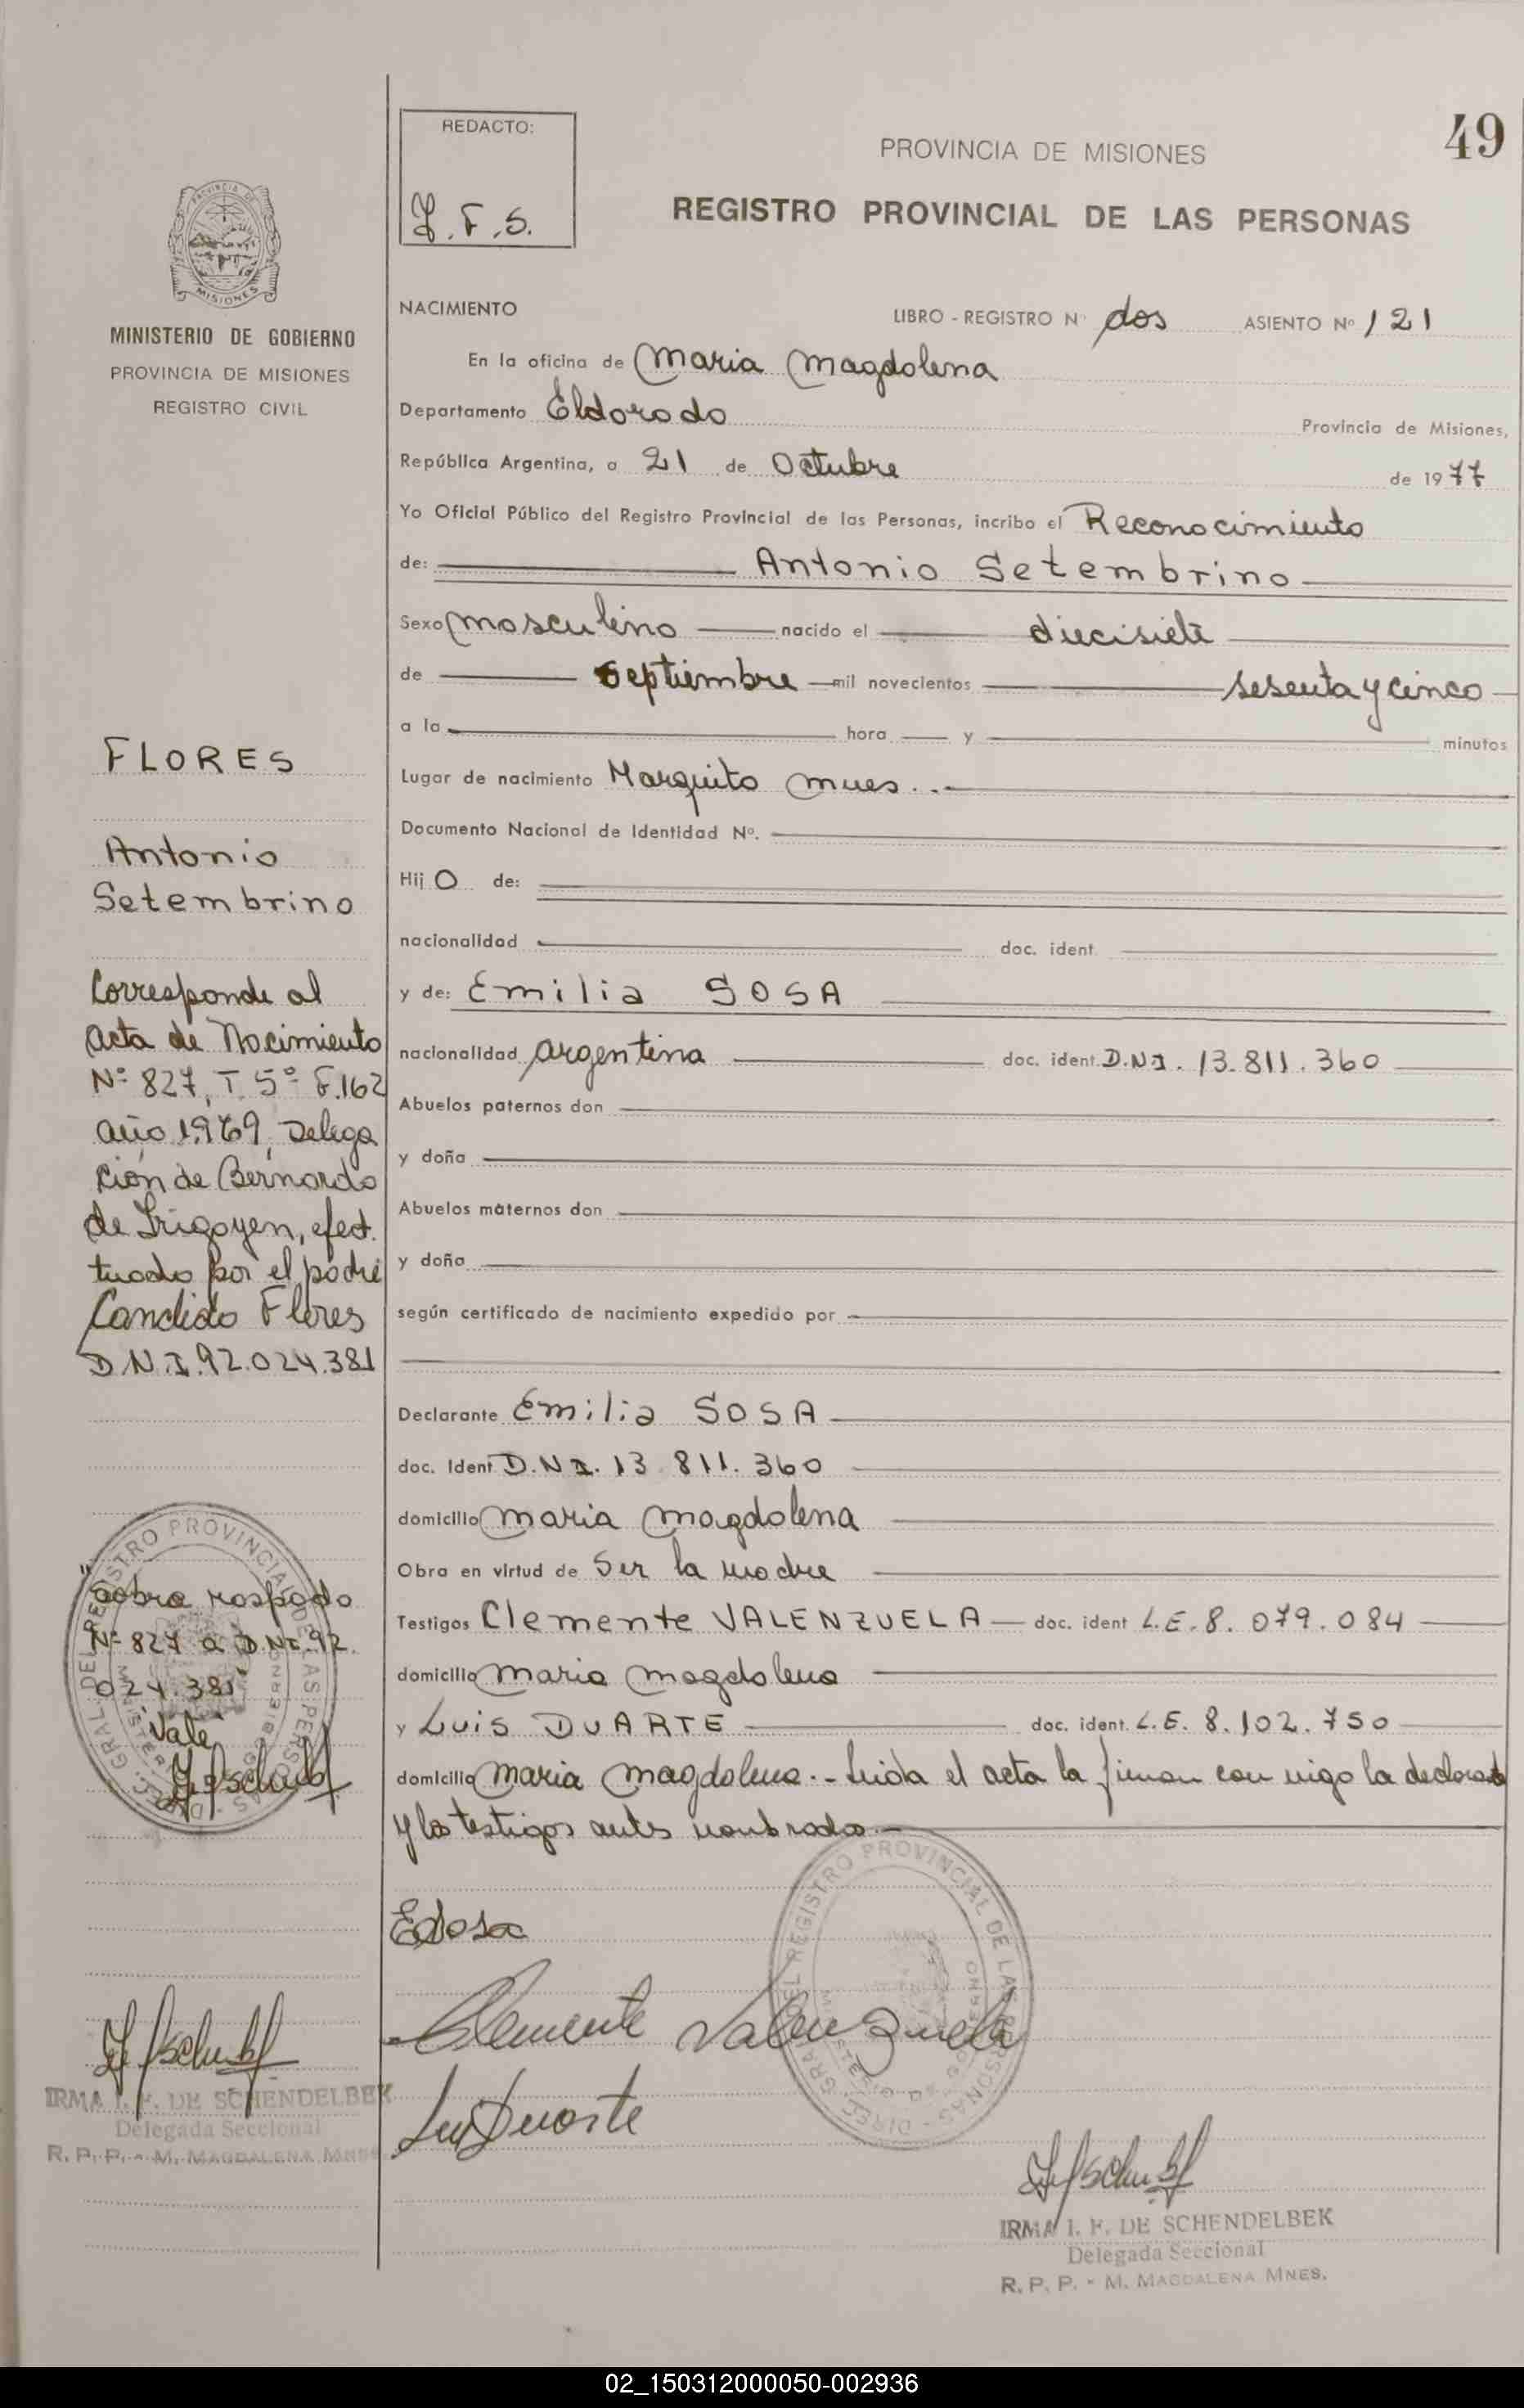 49
REDACTO:
J.F.S.
PROVINCIA DE MISIONES
REGISTRO PROVINCIAL DE LAS PERSONAS
PROVINCIA DE
MISIONES
MINISTERIO DE GOBIERNO
PROVINCIA DE MISIONES
REGISTRO CIVIL
FLORES
Antonio
Setembrino
Corresponde al
acta de Nacimiento
Nº 827, T. 5º F.162
año 1.969, Delega
ción de Bernardo
de Irigoyen, efec.
tuado por el padre
Candido Flores
D.N.I. 92.024.381
"sobre raspado
Nº 827 a D.N.I. 92.
024.381"
Vale
IRMA I. F. DE SCHENDELBEK
Delegada Seccional
R. P. P. - M. MAGDALENA MNES
NACIMIENTO LIBRO - REGISTRO Nº dos ASIENTO Nº 121
En la oficina de Maria Magdalena
Departamento Eldorado Provincia de Misiones,
República Argentina, a 21 de Octubre de 1977
Yo Oficial Público del Registro Provincial de las Personas, incribo el Reconocimiento
de: Antonio Setembrino
Sexo masculino nacido el diecisiete
de septiembre mil novecientos sesenta y cinco
a la hora y minutos
Lugar de nacimiento Marquito mnes..-
Documento Nacional de Identidad Nº.
Hij O de:
nacionalidad doc. ident.
y de: Emilia SOSA
nacionalidad argentina doc. ident. D.N.I. 13.811.360
Abuelos paternos don
y doña
Abuelos maternos don
y doña
según certificado de nacimiento expedido por
Declarante Emilia SOSA
doc. Ident D.N.I. 13.811.360
domicilio maria magdalena
Obra en virtud de Ser la madre
Testigos Clemente VALENZUELA doc. ident L.E. 8.079.084
domicilio maria magdalena
y Luis DUARTE doc. ident. L.E. 8.102.750
domicilio maria magdalena.- Leida el acta la firman con migo la declarante
y los testigos antes nombrados.-
ESosa
Clemente Valenzuela
Luis Duarte
DIREC. GRAL. DEL REGISTRO PROVINCIAL DE LAS PERSONAS
MINISTERIO DE GOBIERNO
IRMA I. F. DE SCHENDELBEK
Delegada Seccional
R. P. P. - M. MAGDALENA MNES.
02_150312000050-002936